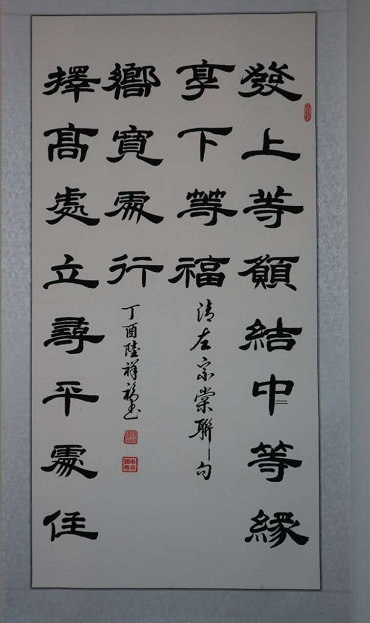 發上等願結中等緣
享下等福
清左宗棠聯句
擇髙處立尋平處住
嚮寬處行
丁酉陸祥福书